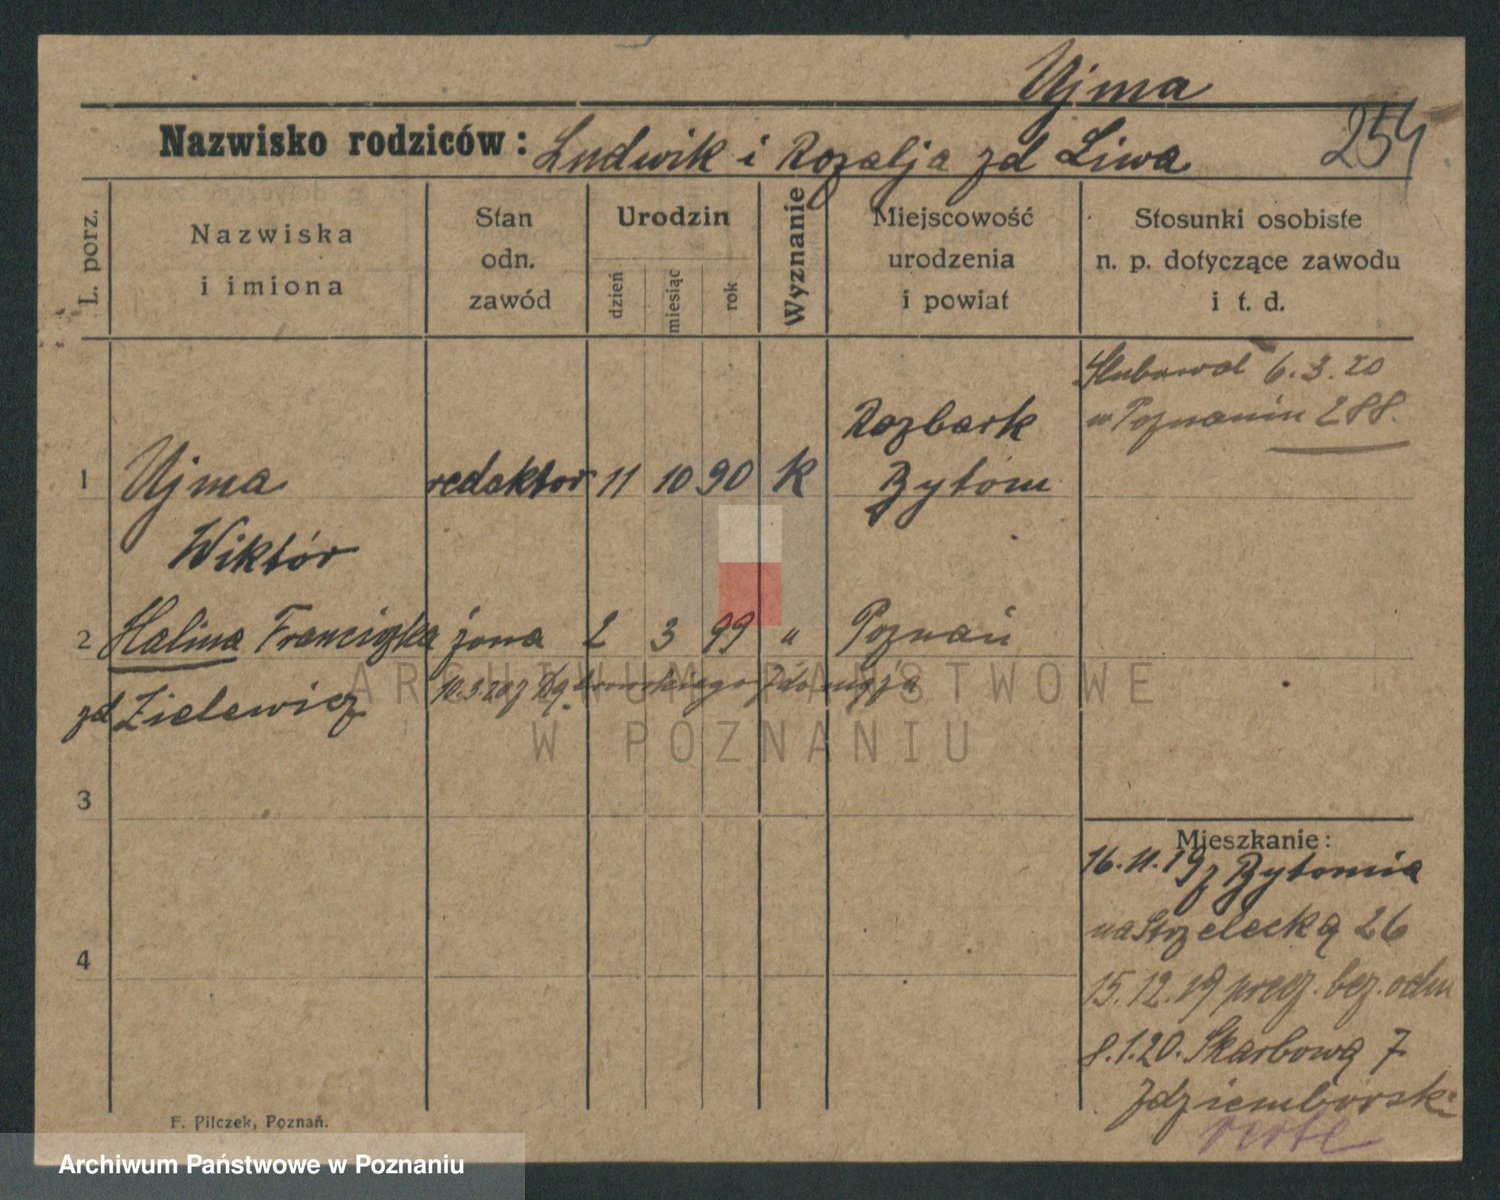 Ujma
254
Nazwisko rodziców: Ludwik i Rozalja zd Liwa
L. porz.
Nazwiska
i imiona
Stan
odn.
zawód
Urodzin
dzień
miesiąc
rok
Wyznanie
Miejscowość
urodzenia
i powiat
Stosunki osobiste
n. p. dotyczące zawodu
i t. d.
Ślubował 6.3.20
w Poznaniu 288.
1 Ujma redaktor 11 10 90 K Rozbark
Bytom
Wiktór
2 Halina Franciszka żona 2 3 99 " Poznań
zd Zielewicz
10.3.20 z Dąbrowskiego
3
4
Mieszkanie:
16.11.19 z Bytomia
na Strzelecką 26
15.12.19 prez. bez. odm
8.1.20. Skarbową 7
Zdziemborski
verte
F. Pilczek, Poznań.
ARCHIWUM PAŃSTWOWE
W POZNANIU
Archiwum Państwowe w Poznaniu